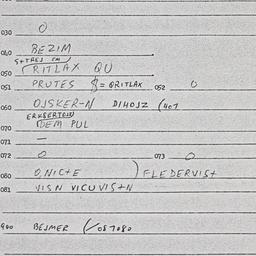 030 0
040 BEZIM
050 RITLAX QU
051 PRUTES $= QRITLAX 052 0
060 OJSKER-N DIHOJZ (407
070 DEM PUL
071 —
072 0 073 0
080 O,NIC+E ) FLEDERVIS+
081 VISN VICUVIS+N
900 BESMER (/087080